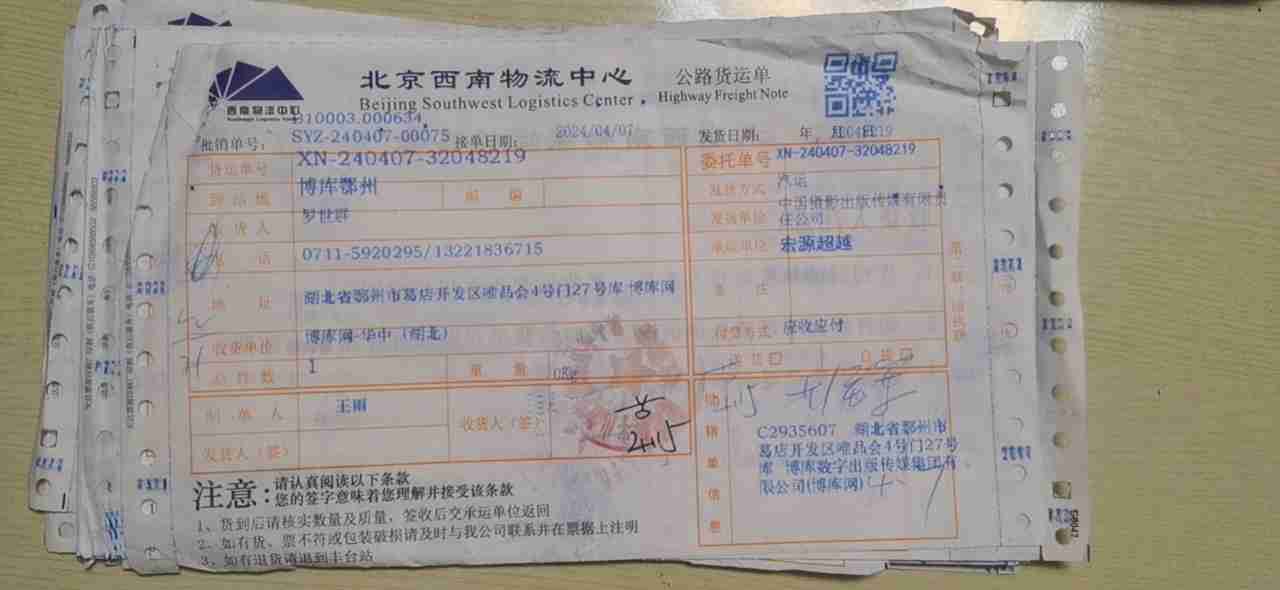 北京西南物流中心 公路货运单
Beijing Southwest Logistics Center Highway Freight Note
西南物流中心
310003.000634
批销单号: SYZ-240407-00075 接单日期: 2024/04/07 发货日期: 年 月 日
货运单号 XN-240407-32048219 委托单号 XN-240407-32048219
到站地 博库鄂州 邮编 发货方式 汽运
收货人 罗世群 发货单位 中国摄影出版传媒有限责任公司
电话 0711-5920295/13221836715 承运单位 宏源超越
地址 湖北省鄂州市葛店开发区唯品会4号门27号库 博库网 备注
收货单位 博库网-华中（湖北） 付费方式 应收应付
总件数 1 重量 送货 自提
制单人 王雨 收货人（签）
发货人（签）
C2935607 湖北省鄂州市
葛店开发区唯品会4号门27号
库 博库数字出版传媒集团有
限公司(博库网)
注意: 请认真阅读以下条款
您的签字意味着您理解并接受该条款
1、货到后请核实数量及质量，签收后交承运单位返回
2、如有货、票不符或包装破损请及时与我公司联系并在票据上注明
3、如有退货请退到丰台站